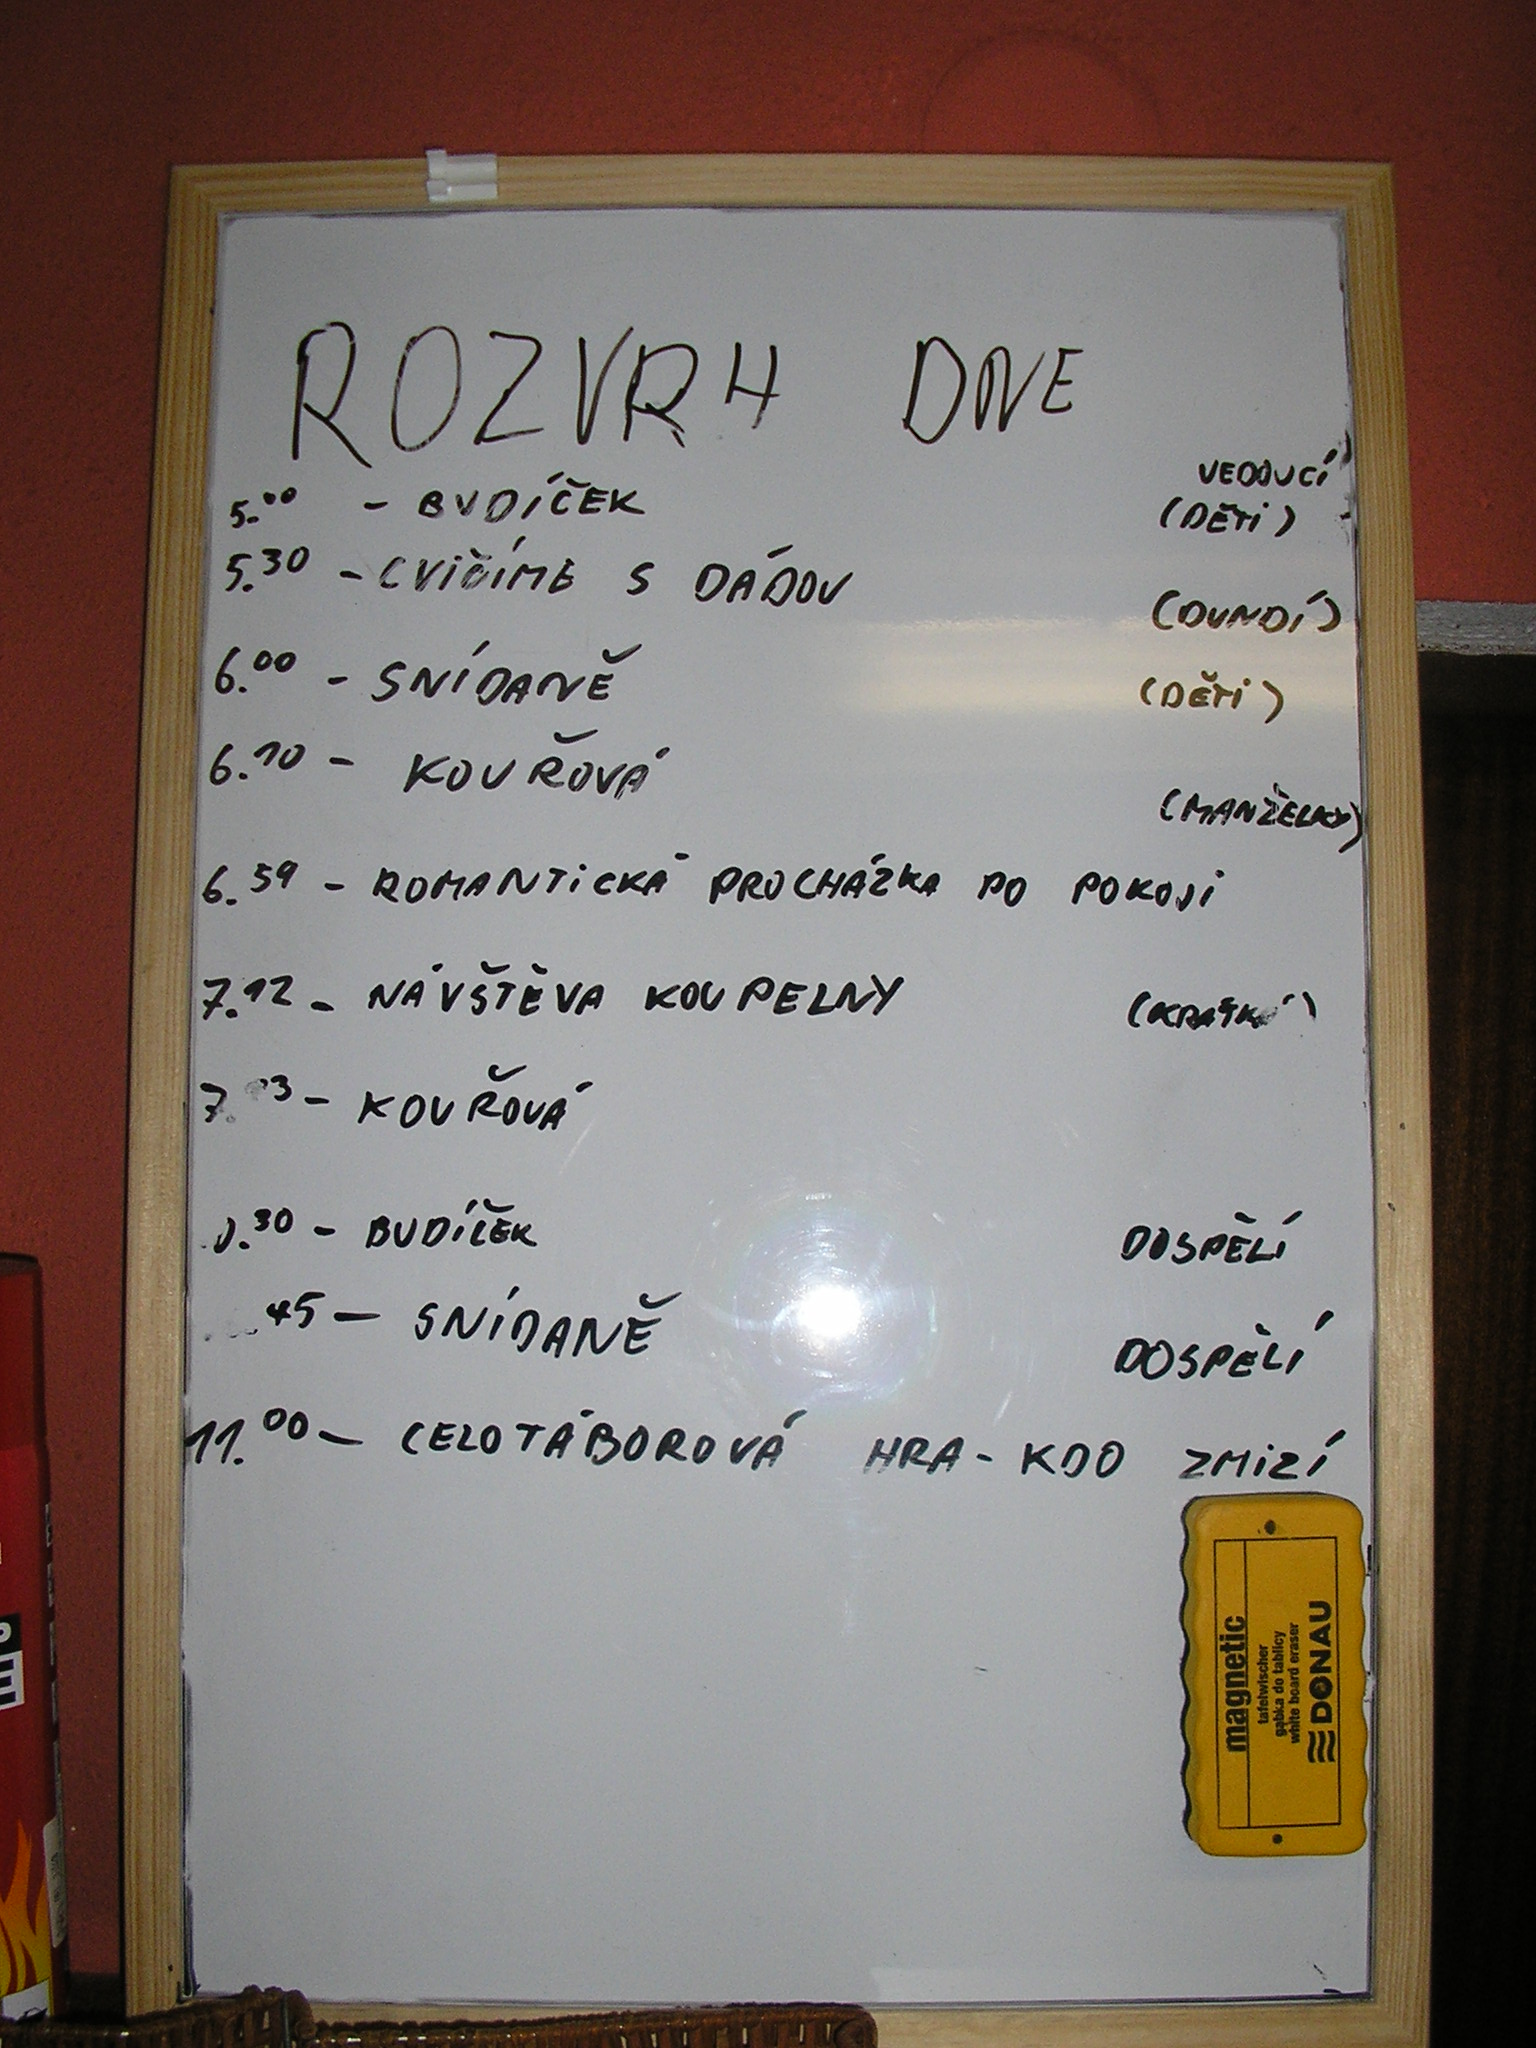 ROZVRH DNE
VEDOUCÍ
5.00 - BUDÍČEK (DĚTI)
5.30 - CVIČÍME S DÁĎOU (DUNDÍ)
6.00 - SNÍDANĚ (DĚTI)
6.10 - KOUŘOVÁ
(MANŽELKY)
6.59 - ROMANTICKÁ PROCHÁZKA PO POKOJI
7.12 - NÁVŠTĚVA KOUPELNY (KRÁTKÁ)
7. 13 - KOUŘOVÁ
.30 - BUDÍČEK DOSPĚLÍ
45 - SNÍDANĚ DOSPĚLÍ
11.00 - CELOTÁBOROVÁ HRA - KDO ZMIZÍ
magnetic
tafelwischer
gąbka do tablicy
white board eraser
DONAU